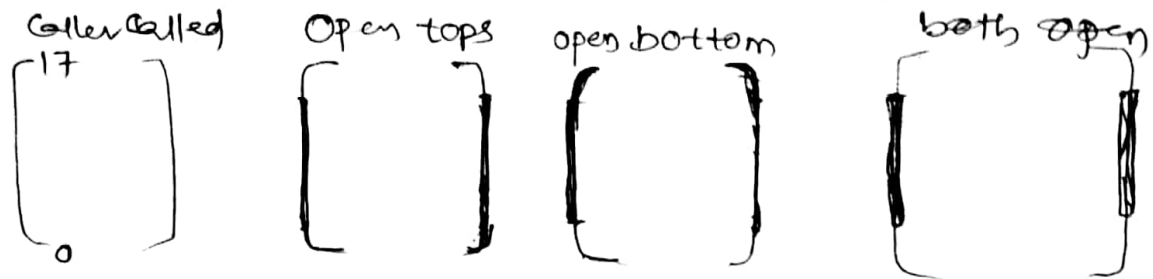 Caller Called
Open tops
open bottom
both open
17
0